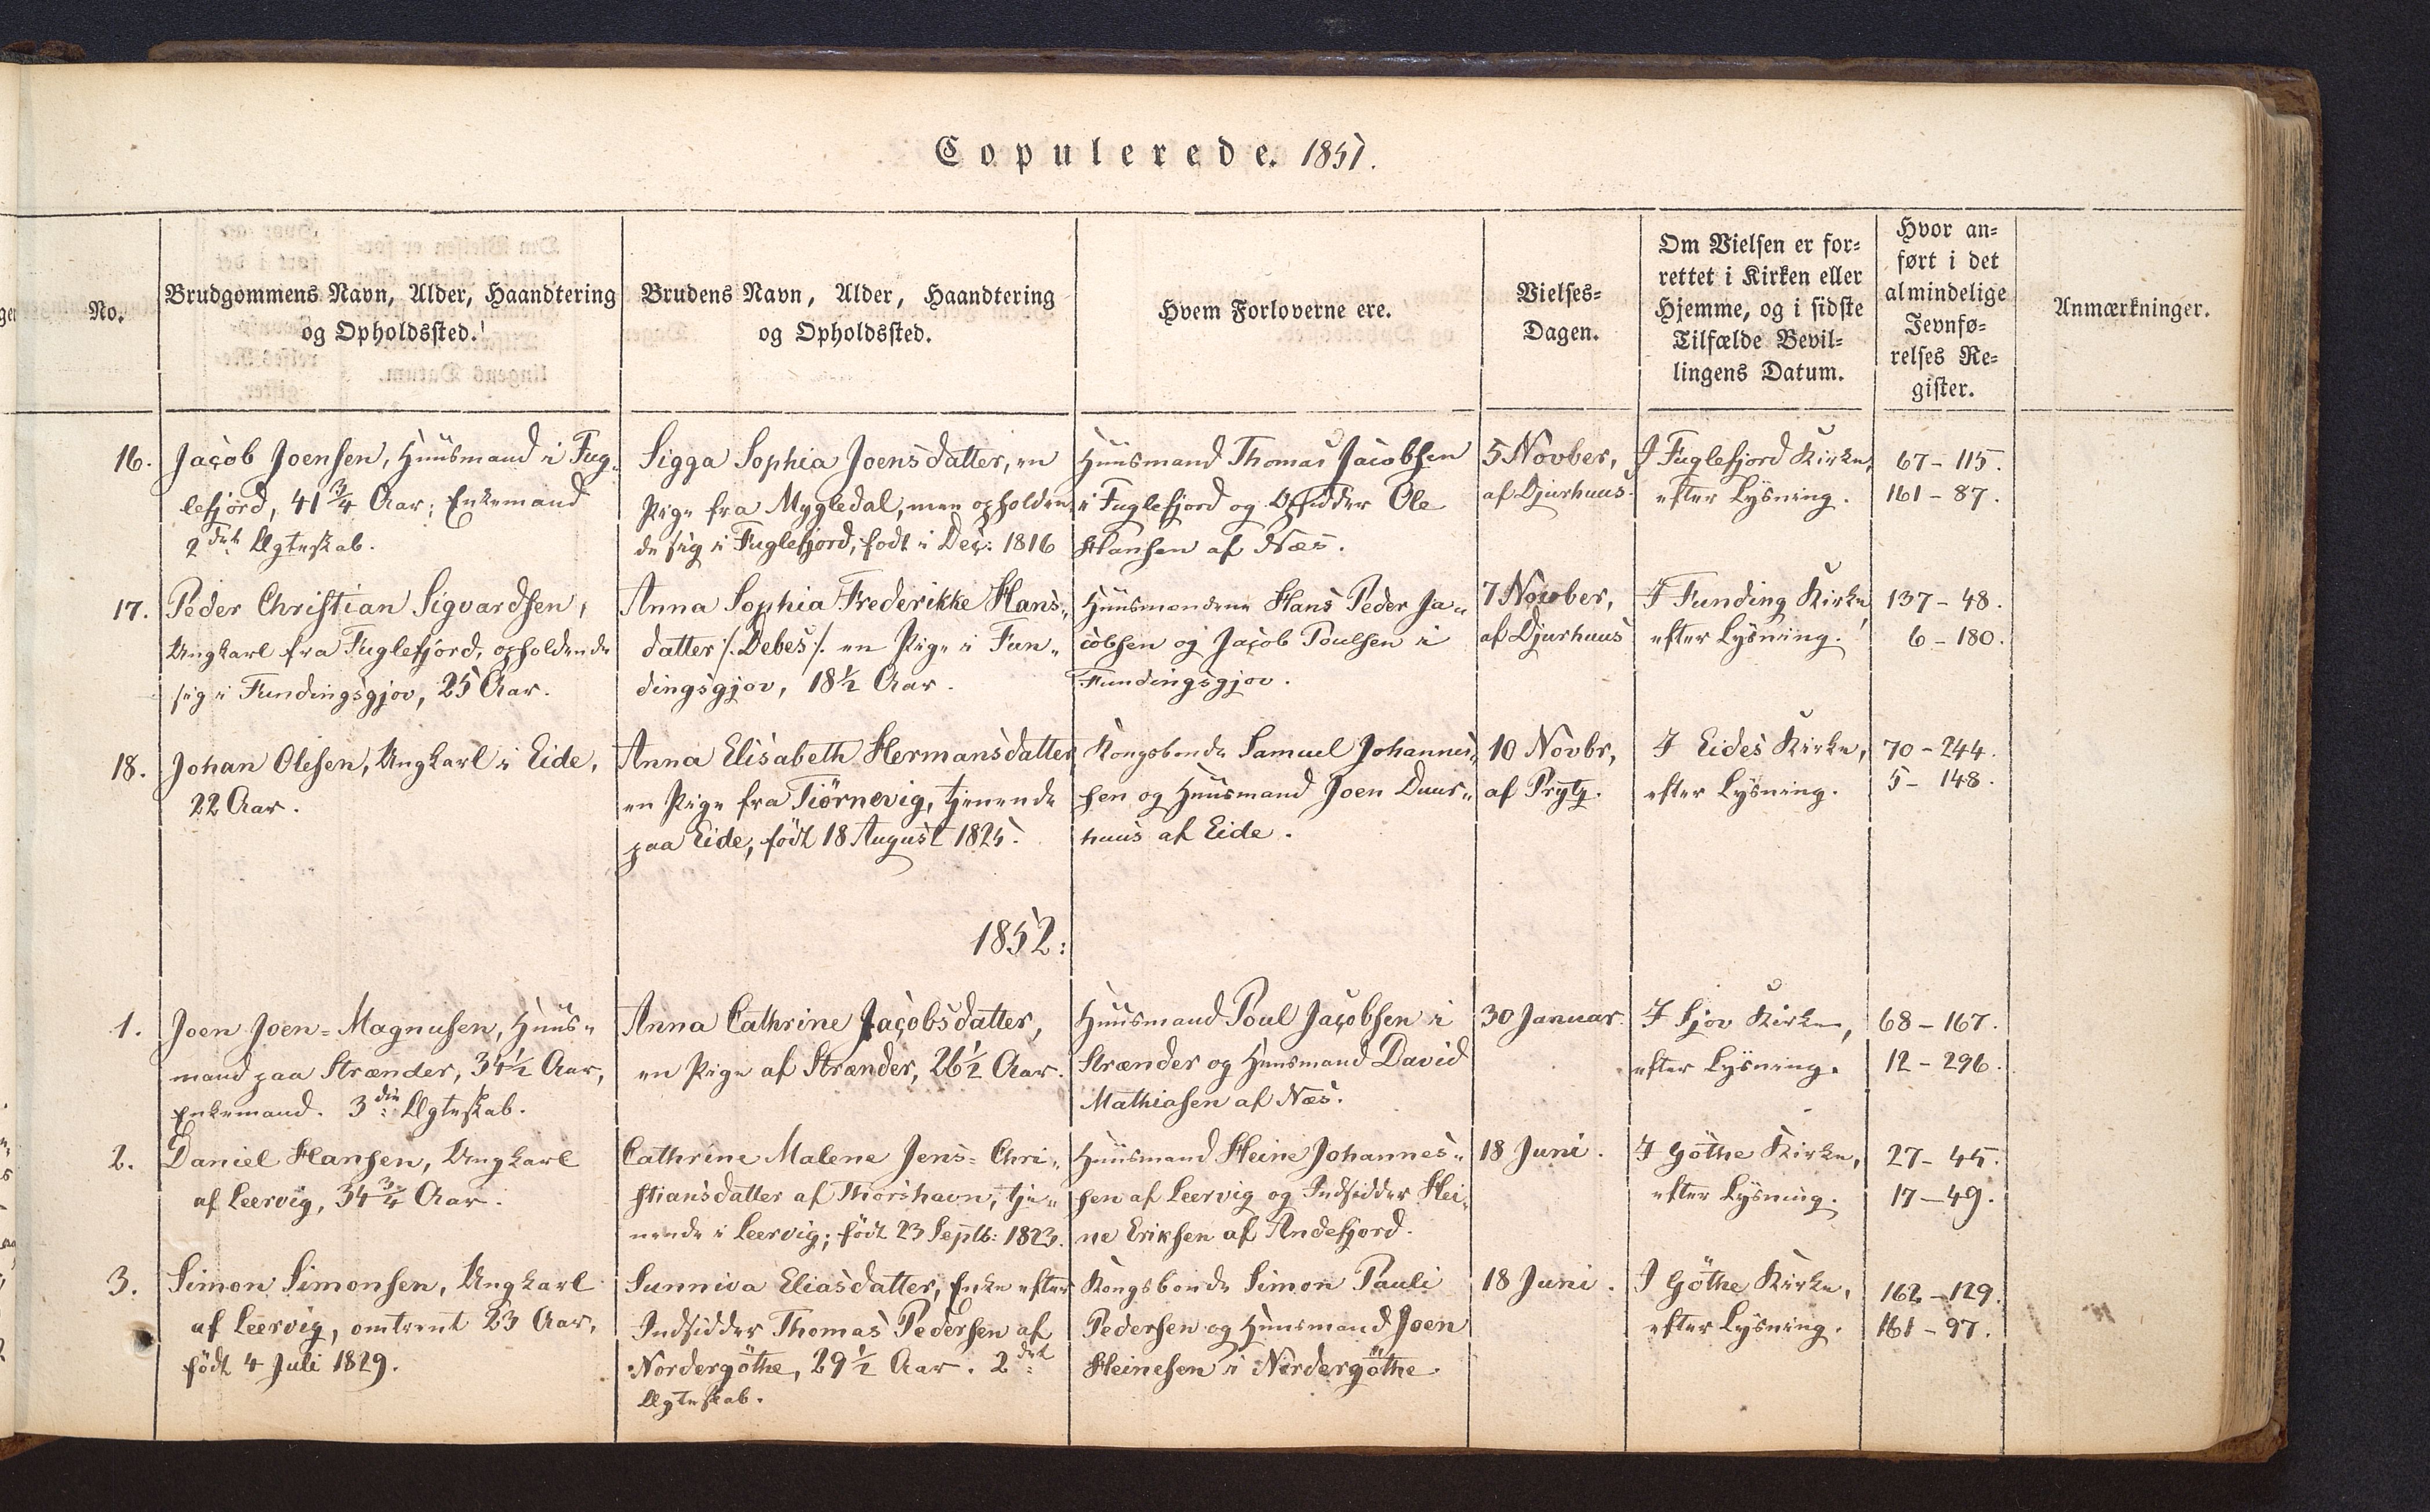 Copulerede. 1851.
No.
Brudgommens Navn, Alder, Haandtering
og Opholdssted.
Brudens Navn, Alder, Haandtering
og Opholdssted.
Hvem Forloverne ere.
Vielses-
Dagen.
Om Vielsen er for-
rettet i Kirken eller
Hjemme, og i sidste
Tilfælde Bevil-
lingens Datum.
Hvor an-
ført i det
almindelige
Jevnfø-
relses Re-
gister.
Anmærkninger.
16.
Jacob Joensen, Huusmand i Fug-
lefjord, 41 3/4 Aar; Enkemand
2det Ægteskab.
Sigga Sophia Joensdatter, en
Pige fra Mygledal, men opholden
de sig i Fuglefjord, født i Dec: 1816
Huusmand Thomas Jacobsen
i Fuglefjord og Opsidder Ole
Hansen af Næs.
5 Novber,
af Djurhuus.
I Fuglefjord Kirke,
efter Lysning.
67 - 115.
161 - 87.
17.
Peder Christian Sigvardsen,
Ungkarl fra Fuglefjord, opholdende
sig i Fundingsgjov, 25 Aar.
Anna Sophia Frederikke Hans-
datter /: Debes :/ en Pige i Fun-
dingsgjov, 18 1/2 Aar.
Huusmændene Hans Peder Ja-
cobsen og Jacob Poulsen i
Fundingsgjov.
7 November,
af Djurhuus
I Funding Kirke,
efter Lysning.
137 - 48.
6 - 180.
18.
Johan Olesen, Ungkarl i Eide,
22 Aar.
Anna Elisabeth Hermansdatter
en Pige fra Tiörnevig, tjenende
paa Eide, født 18 August 1825.
Kongsbonde Samuel Johannes-
sen og Huusmand Joen Duur-
huus af Eide.
10 Novbr,
af Prytz.
I Eides Kirke,
efter Lysning.
70 - 244.
5 - 148.
1852:
1.
Joen Joen-Magnusen, Huus-
mand paa Strænder, 34 1/2 Aar,
Enkemand. 3die Ægteskab.
Anna Cathrine Jacobsdatter,
en Pige af Strænder, 26 1/2 Aar.
Huusmand Poul Jacobsen i
Strænder og Huusmand David
Mathiasen af Næs.
30 Januar.
I Sjov Kirke,
efter Lysning.
68 - 167.
12 - 296.
2.
Daniel Hansen, Ungkarl
af Leervig, 34 3/4 Aar.
Cathrine Malene Jens-Chri-
stiansdatter af Thorshavn, tje-
nende i Leervig; født 23 Septb: 1823.
Huusmand Heine Johannes-
sen af Leervig og Indsidder Hei-
ne Eriksen af Andefjord.
18 Juni.
I Göthe Kirke,
efter Lysning.
27 - 45.
17 - 49.
3.
Simon Simonsen, Ungkarl
af Leervig, omtrent 23 Aar,
født 4 Juli 1829.
Sunniva Eliasdatter, Enke efter
Indsidder Thomas Pedersen af
Nordergöthe, 29 1/2 Aar. 2det
Ægteskab.
Kongsbonde Simon Pauli
Pedersen og Huusmand Joen
Heinesen i Nordergöthe.
18 Juni.
I Göthe Kirke,
efter Lysning.
162 - 129.
161 - 97.